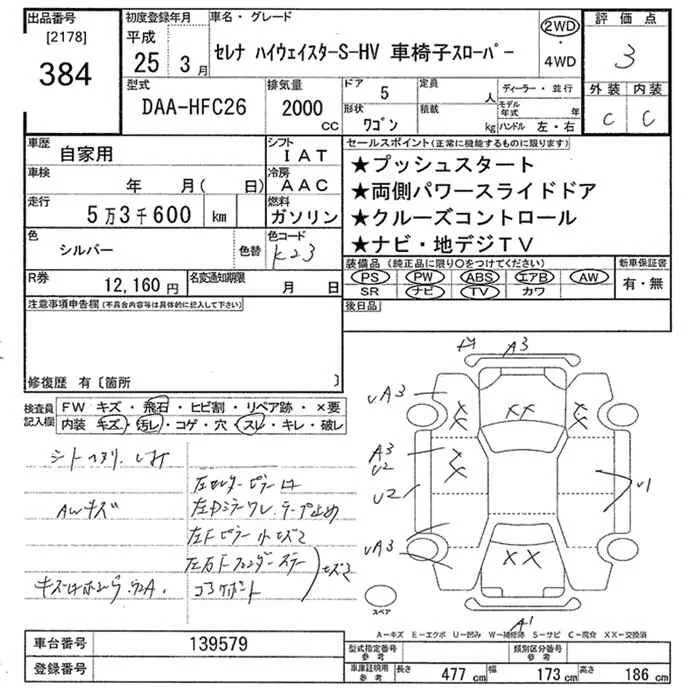 出品番号
[2178]
384
初度登録年月
平成
25 3月
車名・グレード
セレナ ハイウェイスターS-HV 車椅子スローパー
2WD
・
4WD
評価点
3
外装 内装
C C
型式
DAA-HFC26
排気量
2000
cc
ドア 5
形状
ワゴン
定員
人
積載
kg
ディーラー・並行
モデル年式 年
ハンドル 左・右
車歴
自家用
シフト
IAT
車検
年 月( 日)
冷房
AAC
走行
5万3千600 km
燃料
ガソリン
色
シルバー
色替
色コード
K23
R券
12,160円
名変通知期限
月 日
セールスポイント(正常に機能するものに限ります)
★プッシュスタート
★両側パワースライドドア
★クルーズコントロール
★ナビ・地デジTV
装備品 (純正品に限り○をつけてください)
PS PW ABS エアB AW
SR ナビ TV カワ
新車保証書
有・無
後日品
注意事項申告欄(不具合内容等は具体的に記入して下さい)
修復歴 有〔箇所 〕
検査員記入欄
FW キズ・飛石・ヒビ割・リペア跡・×要
内装 キズ・汚レ・コゲ・穴・スレ・キレ・破レ
AWキズ
A3
UA3
XX
A3
U2
U2
U1
UA3
XX
A1
スペア
A-キズ E-エクボ U-凹み W-補修跡 S-サビ C-腐食 XX-交換済
車台番号
139579
登録番号
型式指定番号
参考
類別区分番号
参考
車庫証明用
参考
長さ 477 cm 幅 173 cm 高さ 186 cm